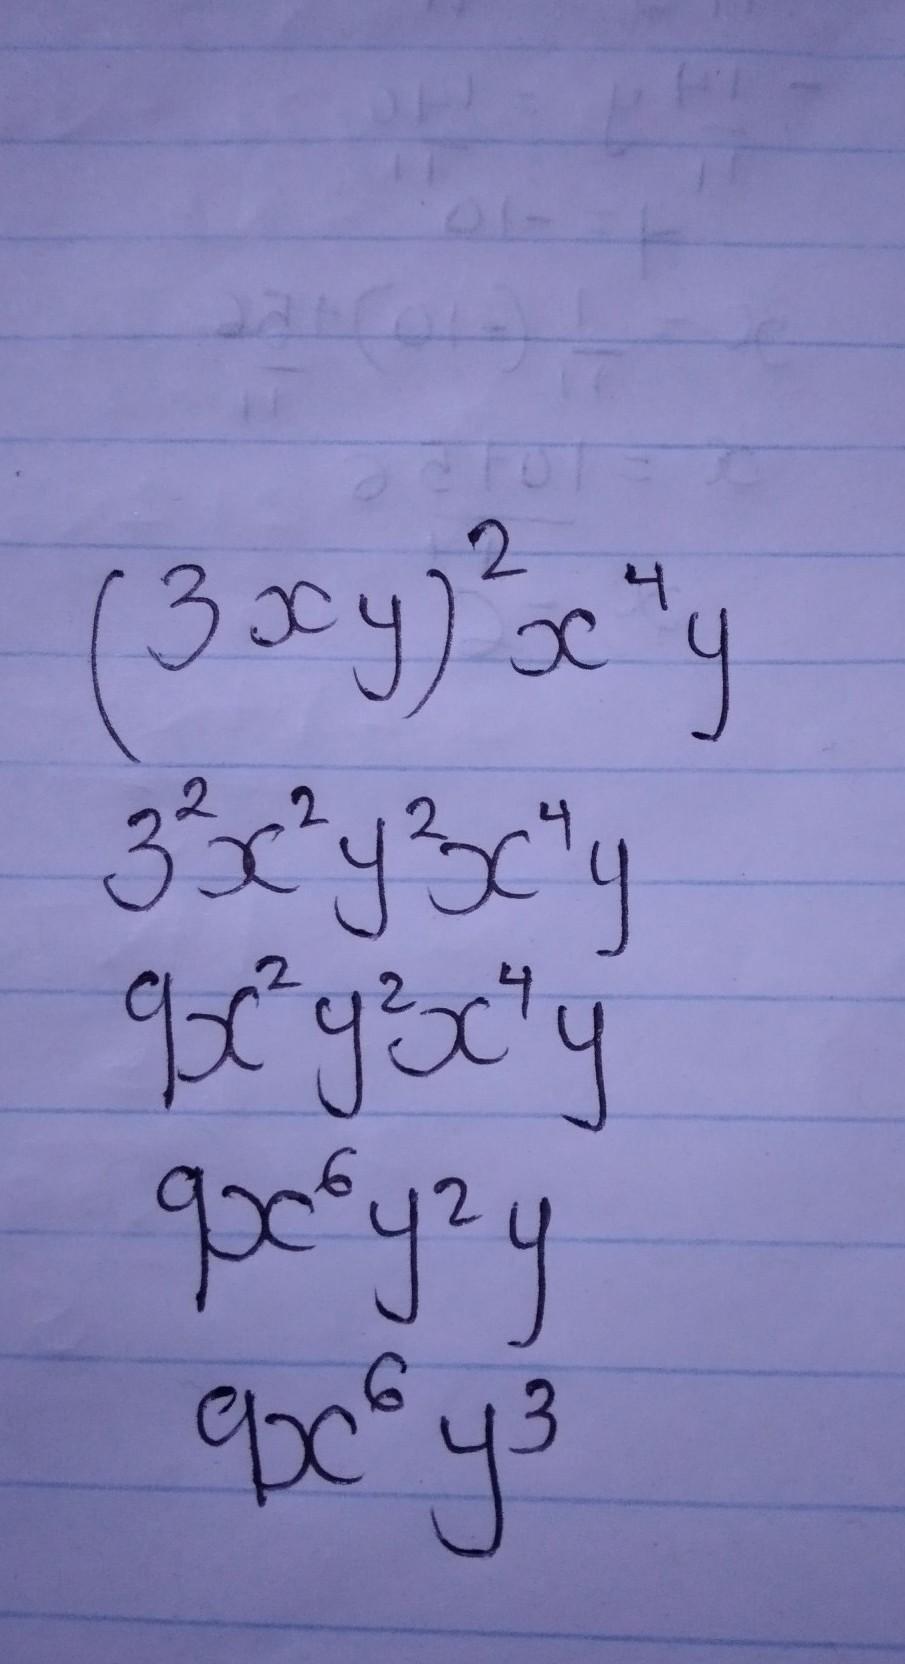 (3xy)²x⁴y
3²x²y²x⁴y
9x²y²x⁴y
9x⁶y²y
9x⁶y³